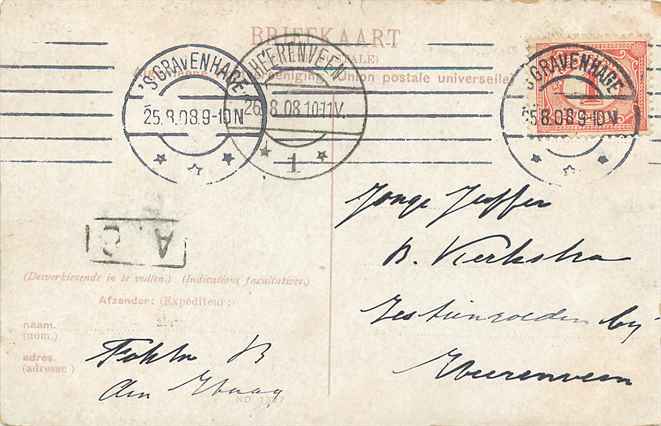 BRIEFKAART
Union postale universelle
'S GRAVENHAGE
25.8.08 9-10 N
HEERENVEEN
26.8.08.10-11V.
1
'S GRAVENHAGE
5.8.08 9-10 N
Jonge Juffer
B. Kerkstra
bij
Heerenveen
(Desverkiezende in te vullen.) (Indications facultatives.)
Afzender: (Expéditeur):
naam.
(nom.)
adres.
(adresse)
B
den Haag